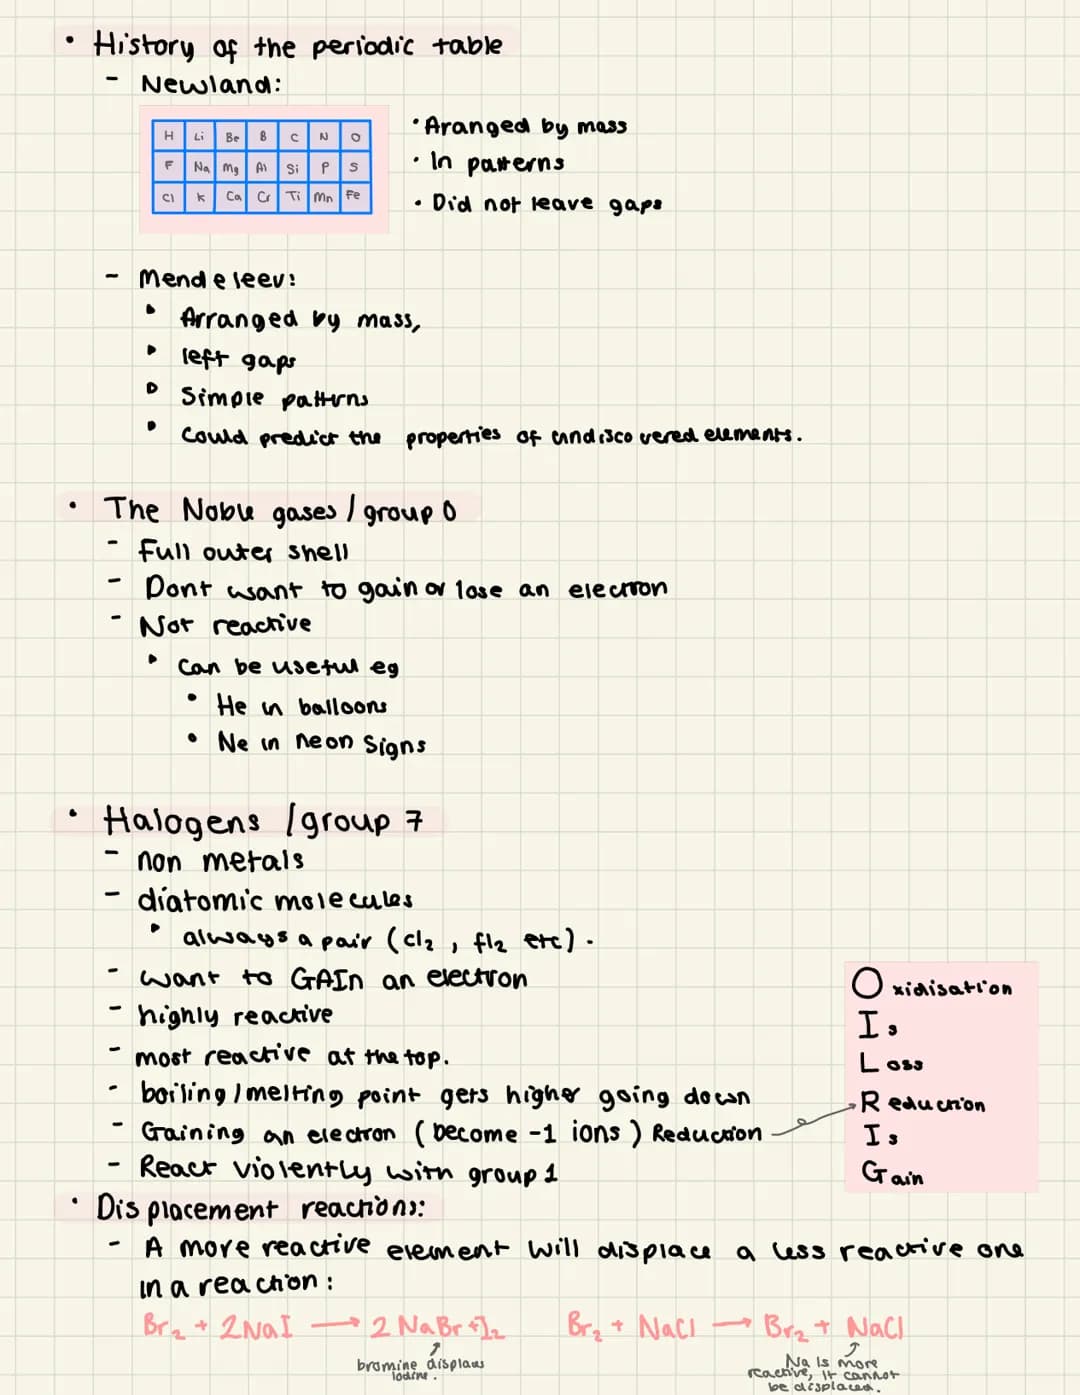 • History of the periodic table
- Newland:
H Li Be B C N O
F Na Mg Al Si P S
Cl K Ca Cr Ti Mn Fe
• Aranged by mass
• In patterns
• Did not leave gaps
- Mendeleev:
• Arranged by mass,
• left gaps
• Simple patterns
• Could predict the properties of undiscovered elements.
• The Noble gases / group 0
- Full outer shell
- Dont want to gain or lose an electron
- Not reactive
• Can be useful eg
• He in balloons
• Ne in neon signs
• Halogens / group 7
- non metals
- diatomic molecules
• always a pair (cl₂, fl₂ etc).
- want to GAIn an electron
- highly reactive
- most reactive at the top.
- boiling / melting point gets higher going down
- Gaining an electron (become -1 ions) Reduction
- React violently with group 1
Oxidisation
Is
Loss
Reduction
Is
Gain
• Displacement reactions:
- A more reactive element will displace a less reactive one
in a reaction:
Br₂ + 2NaI → 2NaBr + I₂
bromine displaces
iodine.
Br₂ + NaCl → Br₂ + NaCl
Na is more
reactive, it cannot
be displaced.